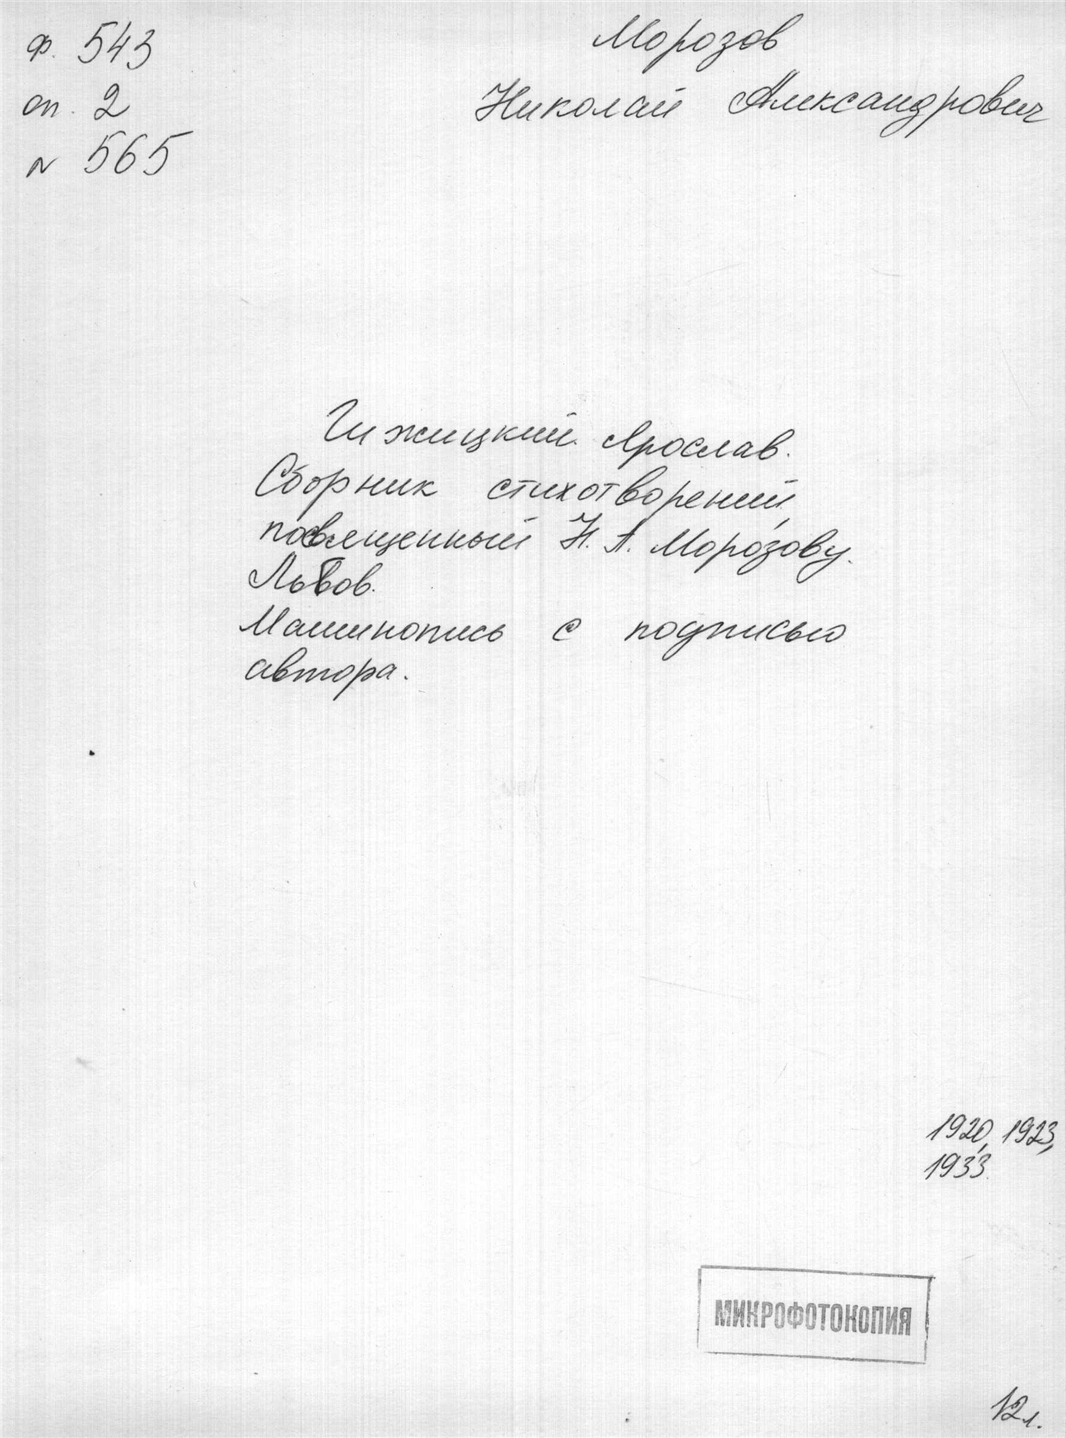 ф. 543
оп. 2
N 565
Морозов
Николай Александрович
Гижицкий Ярослав.
Сборник стихотворений,
посвященный Н. А. Морозову.
Львов.
Машинопись с подписью
автора.
1920, 1923,
1933.
МИКРОФОТОКОПИЯ
12 л.